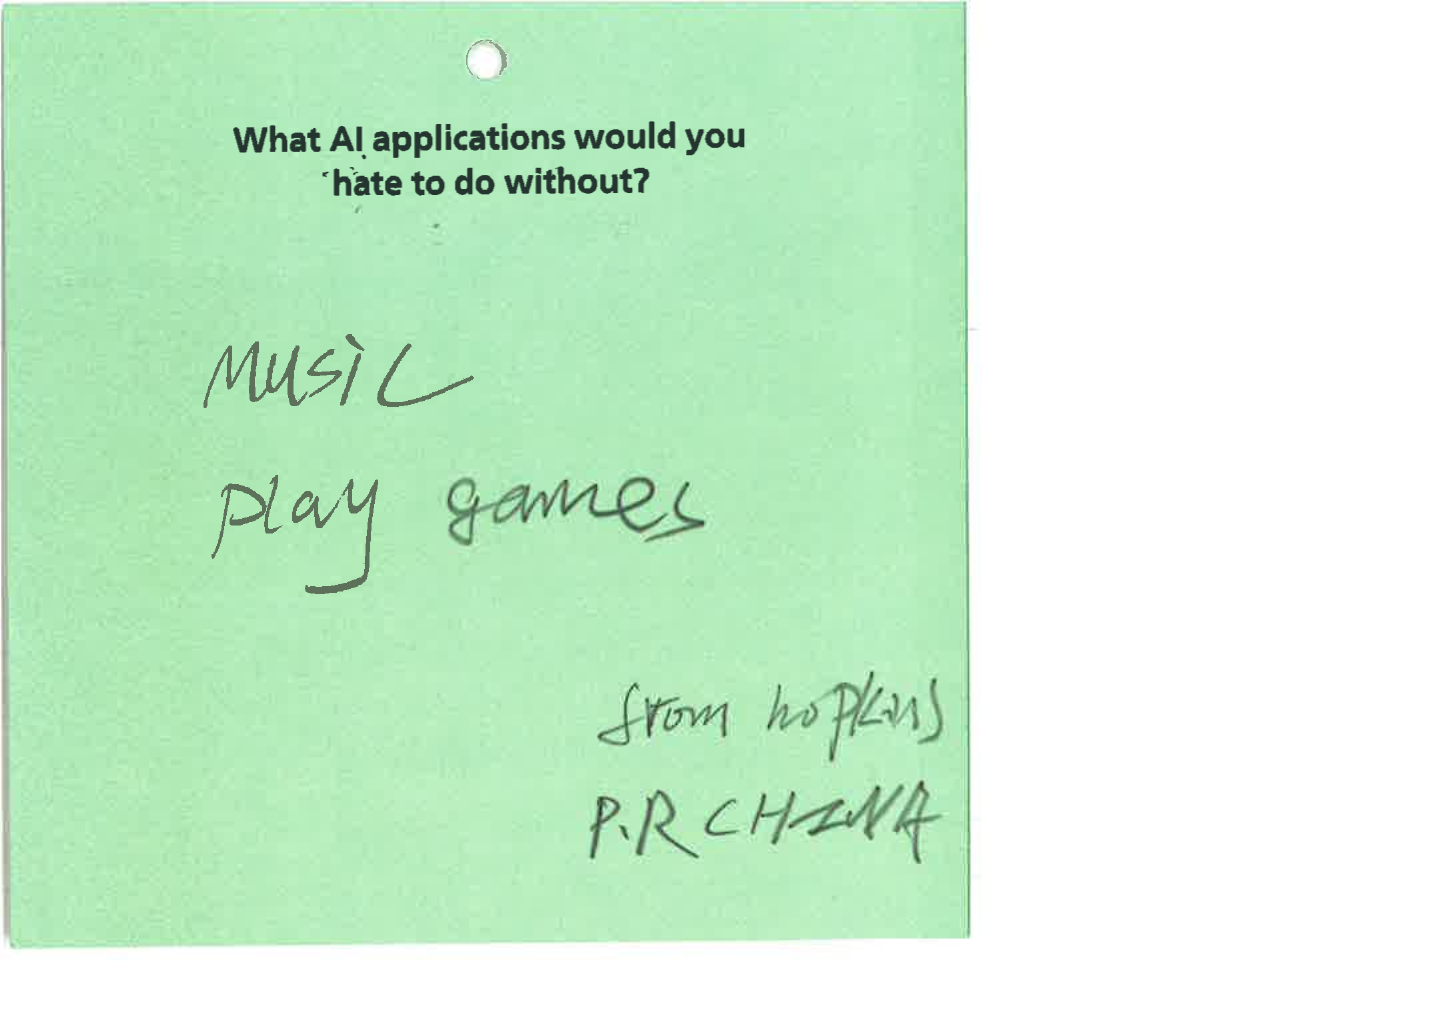 What AI applications would you
hate to do without?
Music
play games
from hopkins
P.R CHINA